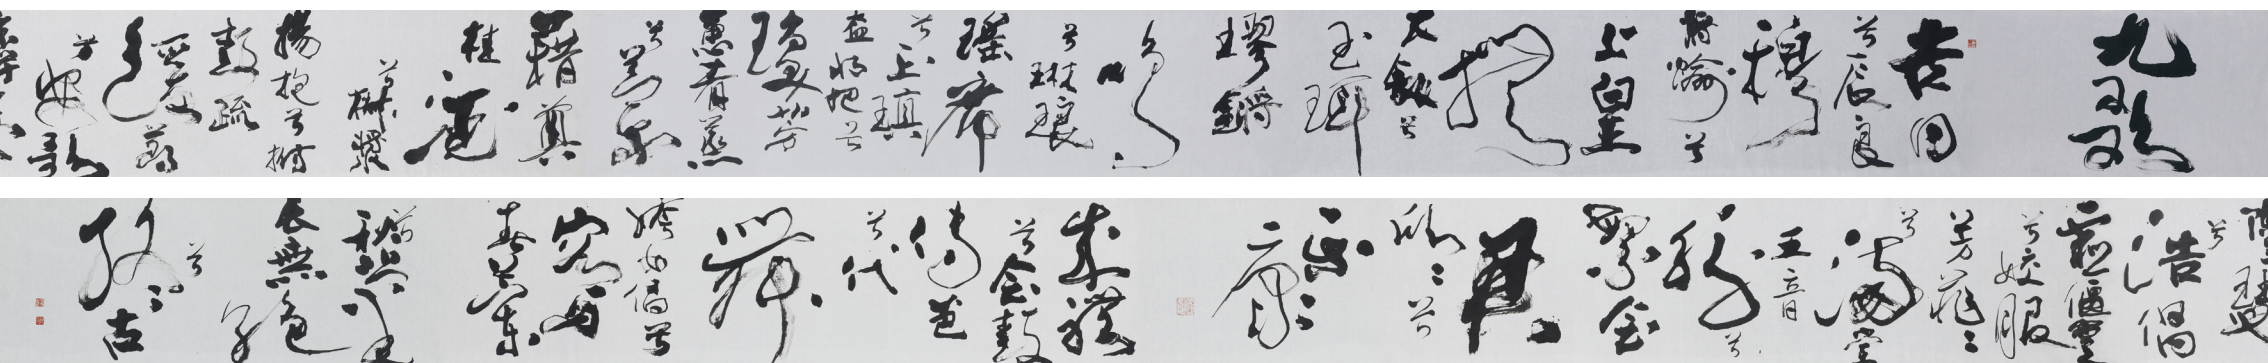 九歌
吉日
兮辰良
穆
將愉兮
上皇
撫
長劍兮
玉珥
璆鏘
鳴
兮琳琅
瑤席
兮玉瑱
盍將把兮
瓊芳
蕙肴蒸
兮蘭
藉奠
桂酒
兮椒漿
揚枹兮拊
鼓疏
緩節
兮安歌
兮
浩倡
靈偃蹇
兮姣服
芳菲菲
兮
滿堂
五音
紛兮
繁會
君
欣欣兮
樂
康
成禮
兮會鼓
傳芭
兮代
舞
姱女倡兮
容與
春蘭
兮
秋菊
長無絕
兮
終古